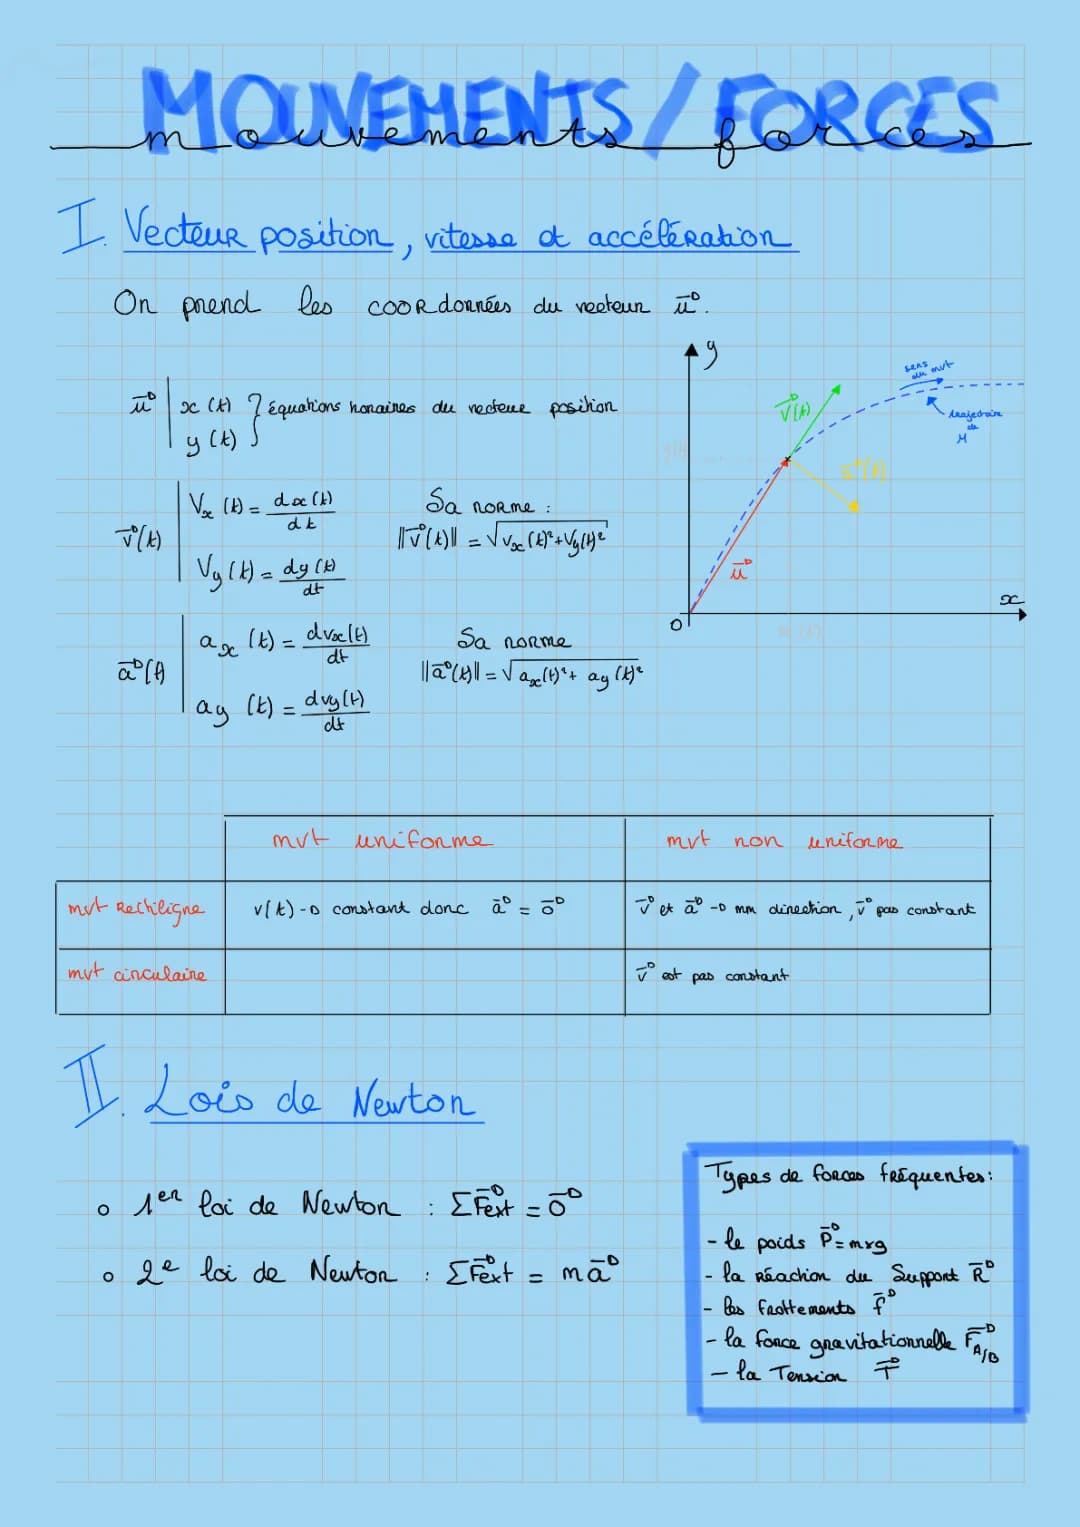 MOUVEMENTS / FORCES
mouvements forces
I. Vecteur position, vitesse et accélération
On prend les coordonnées du vecteur u⃗.
u⃗ | x(t) } équations horaires du vecteur position
y(t)
v⃗(t) | Vx(t) = dx(t)/dt
Vy(t) = dy(t)/dt
Sa norme :
||v⃗(t)|| = √vx(t)²+Vy(t)²
a⃗(t) | ax(t) = dvx(t)/dt
ay(t) = dvy(t)/dt
Sa norme
||a⃗(t)|| = √ax(t)²+ ay(t)²
y
sens du mvt
v⃗(t)
trajectoire de M
a⃗(t)
u⃗
x
O
mvt uniforme
mvt non uniforme
mvt Rectiligne
v(t) → constant donc a⃗ = 0⃗
v⃗ et a⃗ → mm direction, v⃗ pas constant
mvt circulaire
v⃗ est pas constant
II. Lois de Newton
o 1er loi de Newton : ΣF⃗ext = 0⃗
o 2e loi de Newton : ΣF⃗ext = ma⃗
Types de forces fréquentes :
- le poids P⃗=mxg
- la Réaction du Support R⃗
- les frottements f⃗
- la force gravitationnelle F⃗A/B
- la Tension T⃗